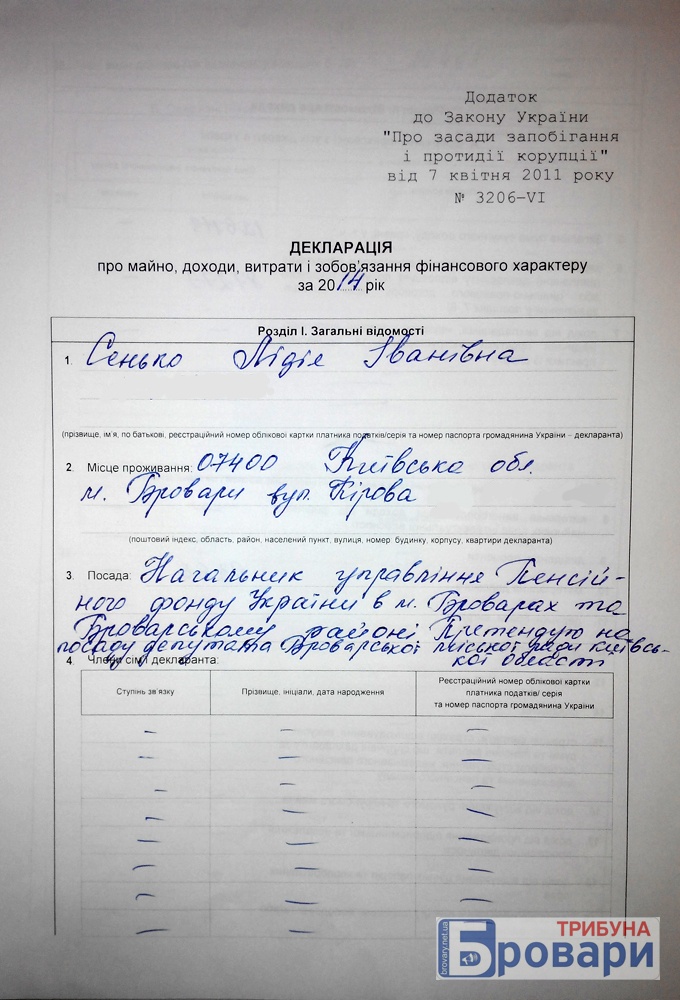 Додаток
до Закону України
"Про засади запобігання
і протидії корупції"
від 7 квітня 2011 року
№ 3206-VI
ДЕКЛАРАЦІЯ
про майно, доходи, витрати і зобов'язання фінансового характеру
за 2014 рік
Розділ I. Загальні відомості
1. Сенько Лідія Іванівна
(прізвище, ім'я, по батькові, реєстраційний номер облікової картки платника податків/серія та номер паспорта громадянина України – декларанта)
2. Місце проживання: 07400 Київська обл.
м. Бровари вул. Кірова
(поштовий індекс, область, район, населений пункт, вулиця, номер будинку, корпусу, квартири декларанта)
3. Посада: Начальник управління Пенсій-
ного фонду України в м. Броварах та
Броварському районі Претендую на
посаду депутата Броварської міської ради Київсь-
кої області
4 Члени сім'ї декларанта:
Ступінь зв'язку
Прізвище, ініціали, дата народження
Реєстраційний номер облікової картки
платника податків/ серія
та номер паспорта громадянина України
– – –
– – –
– – –
– – –
– – –
– – –
– – –
– – –
brovary.net.ua
ТРИБУНА
Бровари